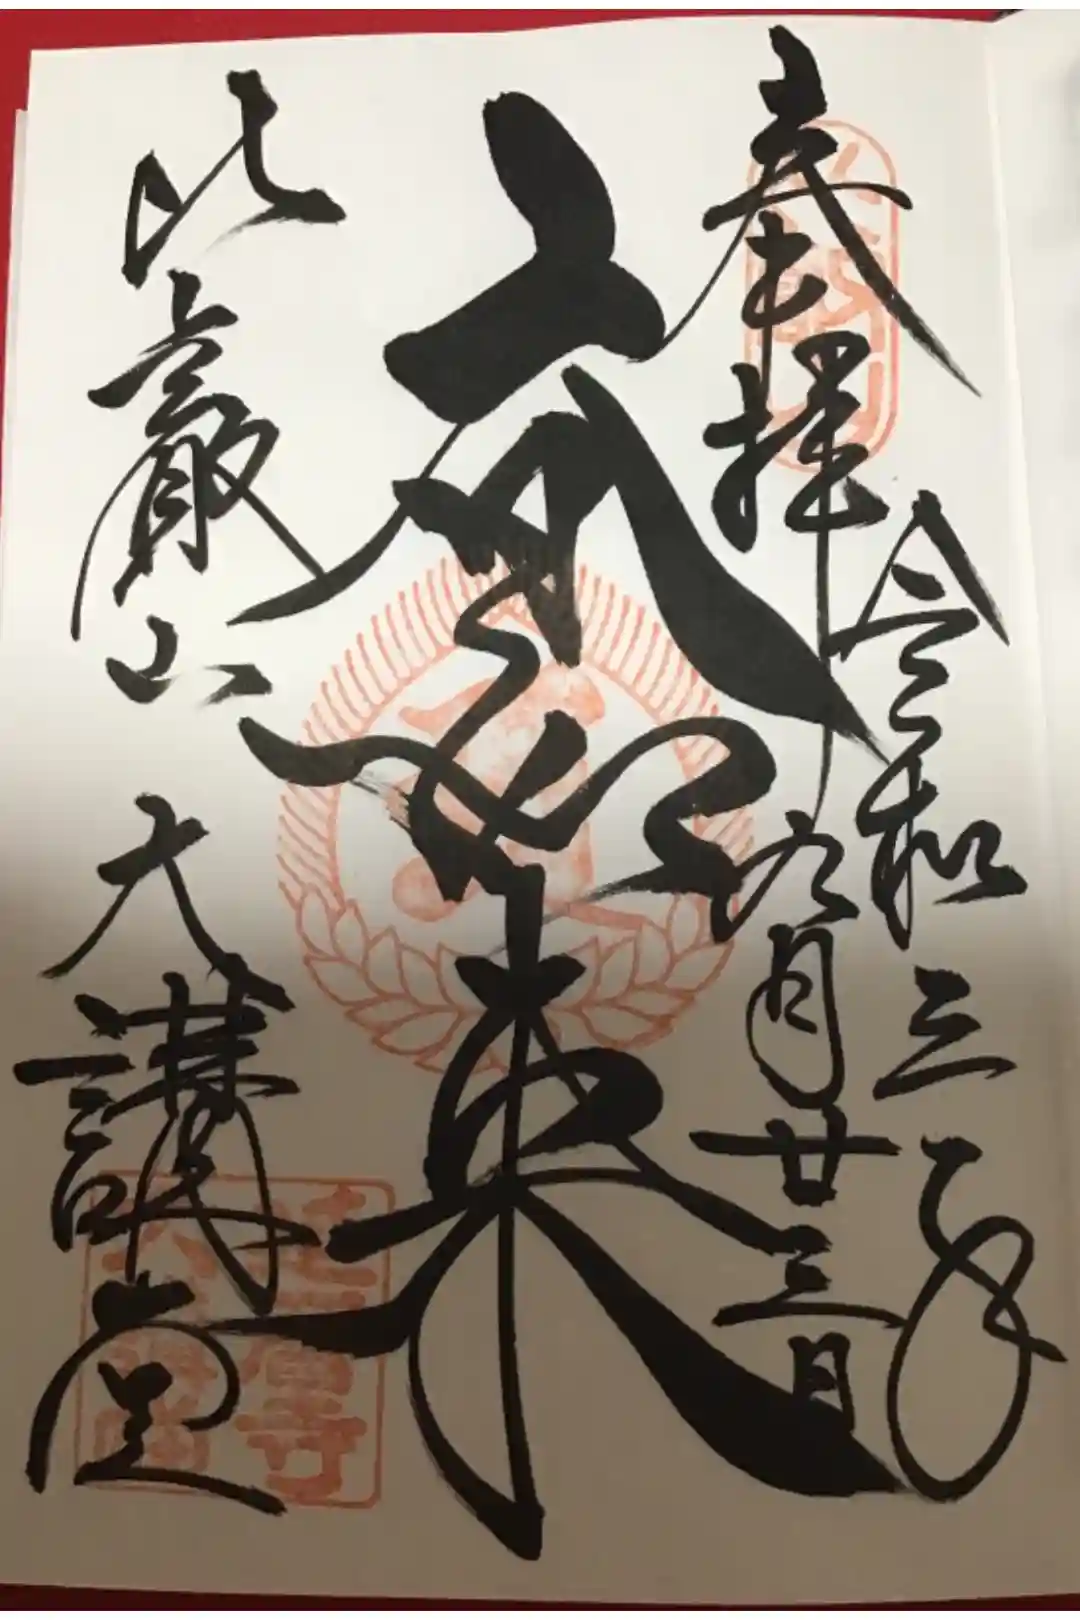 奉拝
令和三年
九月廿三日
如来
比叡山 大講堂